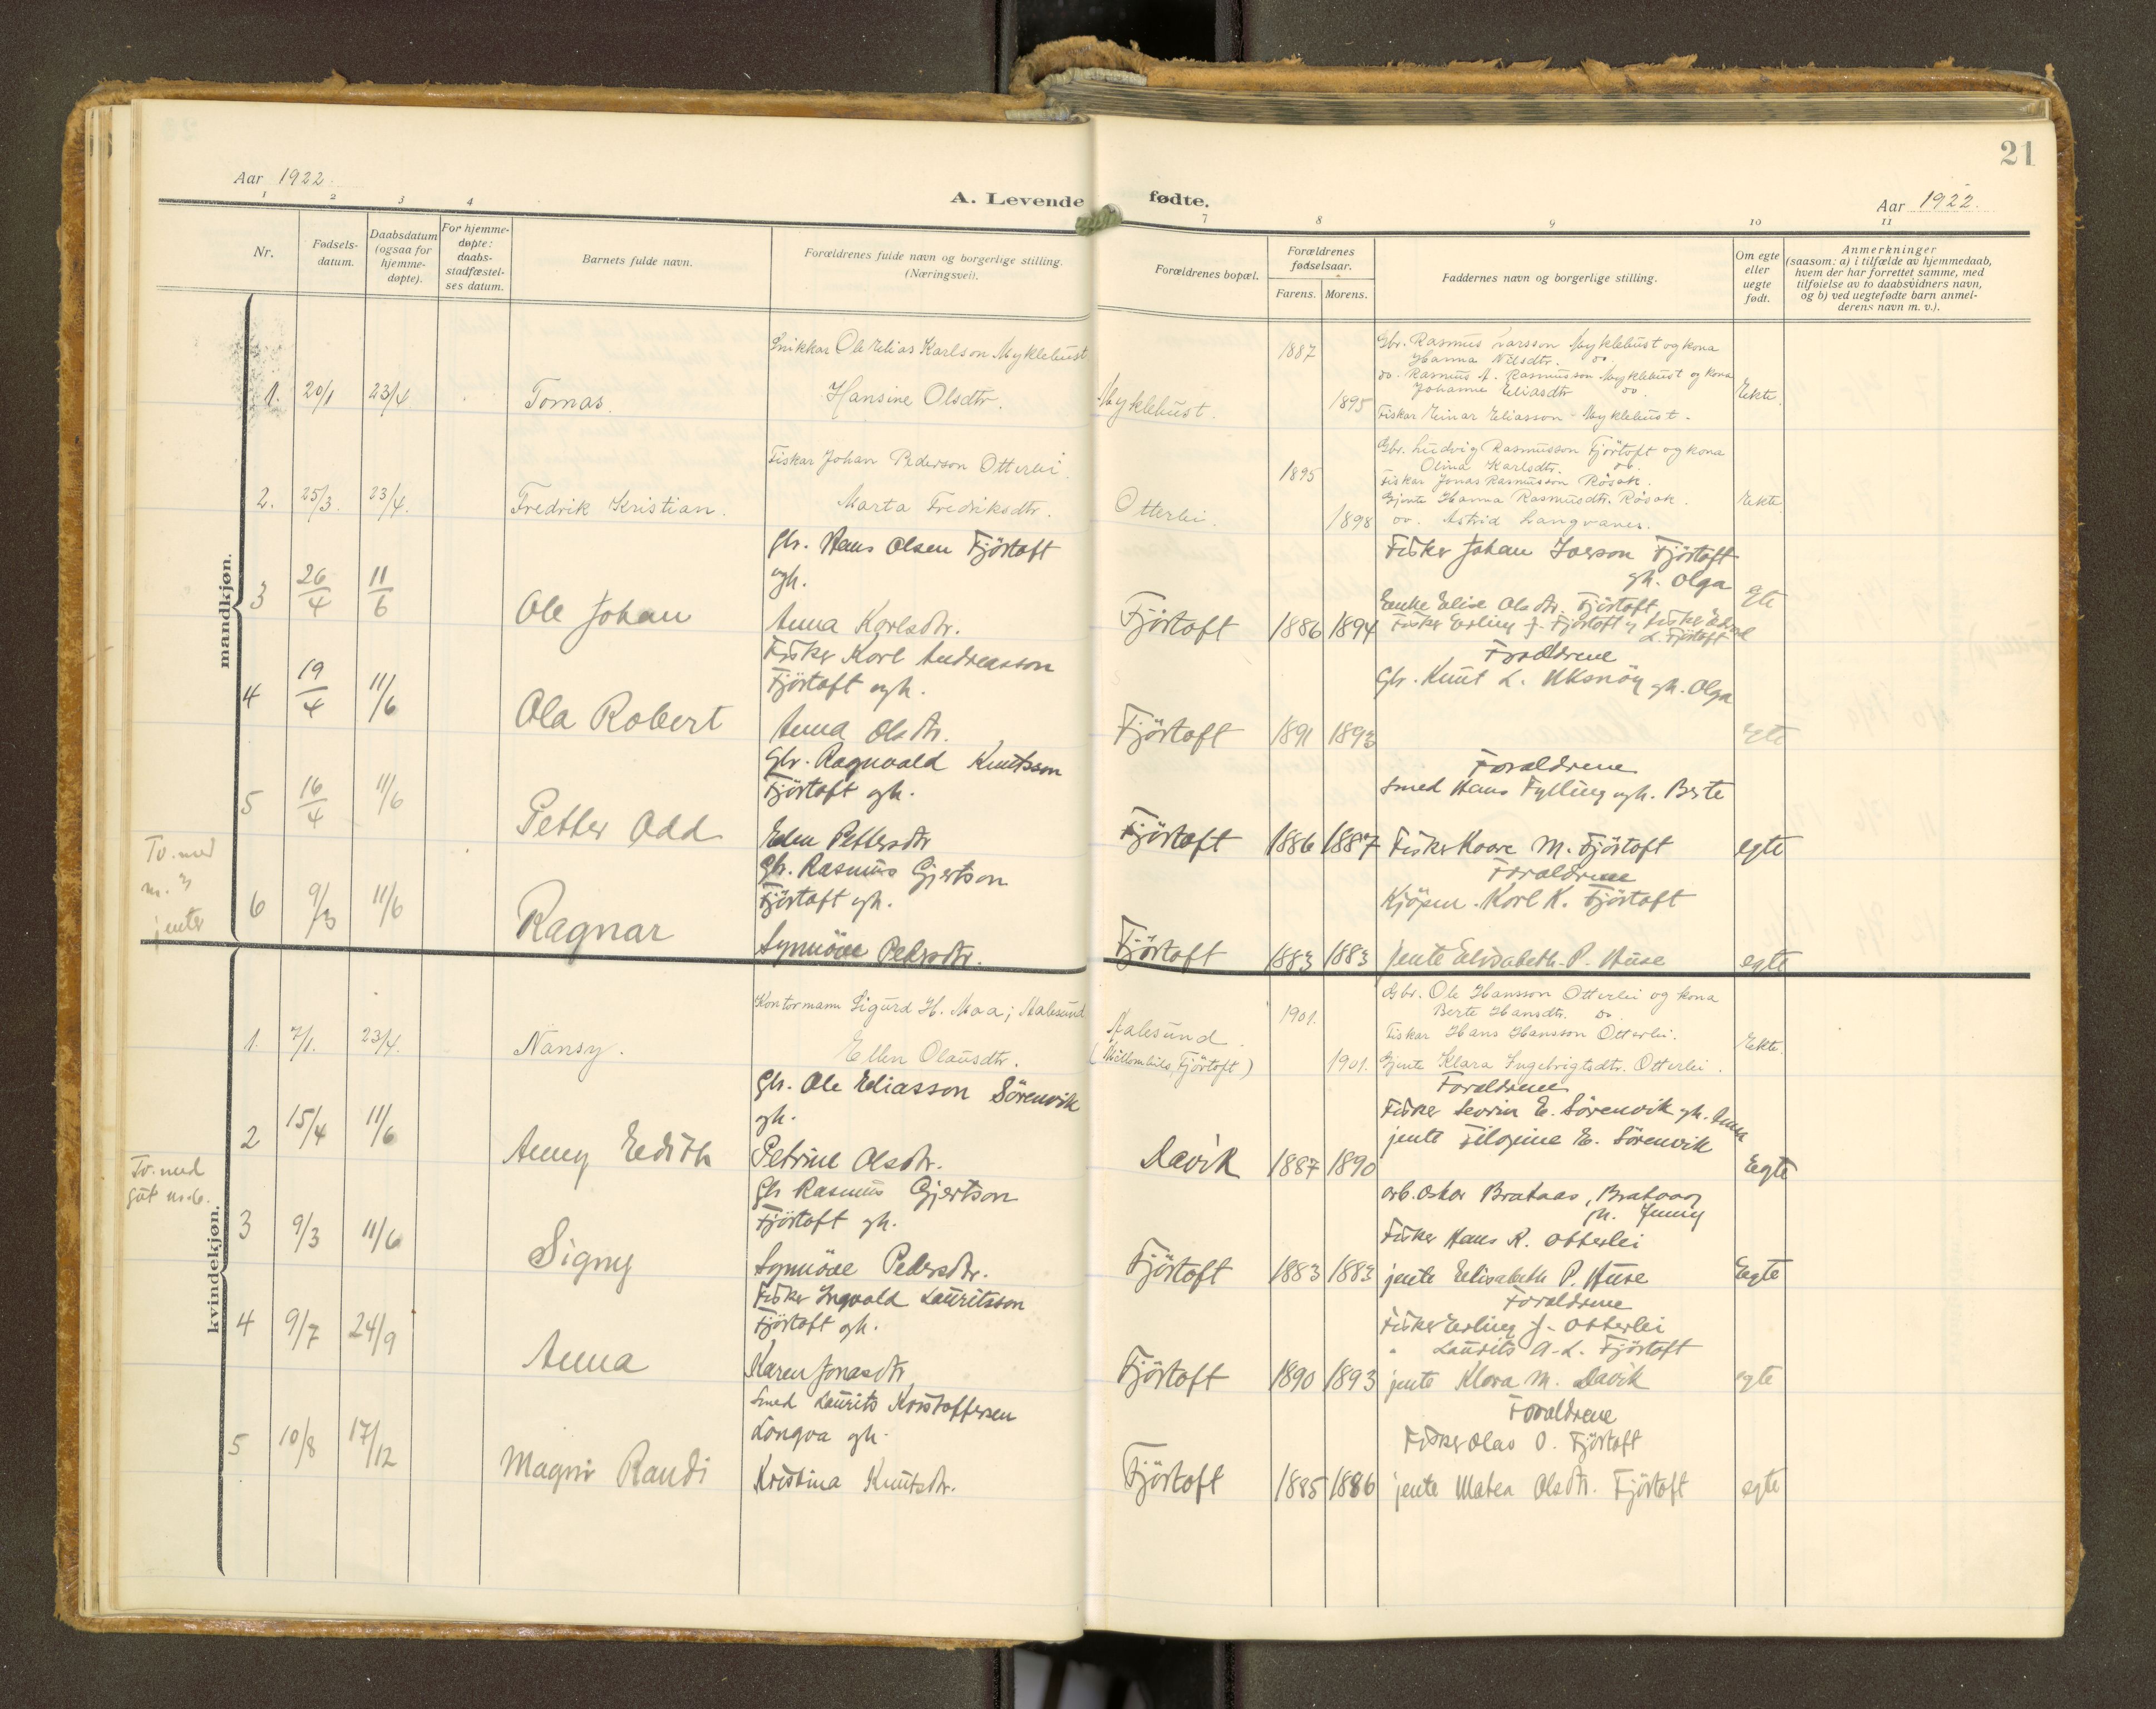 21
Aar 1922.
A. Levende fødte.
Aar 1922.
1 2 3 4 7 8 9 10 11
Nr.
Fødsels-
datum.
Daabsdatum
(ogsaa for
hjemme-
døpte).
For hjemme-
døpte:
daabs-
stadfæstel-
ses datum.
Barnets fulde navn.
Forældrenes fulde navn og borgerlige stilling.
(Næringsvei).
Forældrenes bopæl.
Forældrenes
fødselsaar.
Farens. Morens.
Faddernes navn og borgerlige stilling.
Om egte
eller
uegte
født.
Anmerkninger
(saasom: a) i tilfælde av hjemmedaab,
hvem der har forrettet samme, med
tilføielse av to daabsvidners navn,
og b) ved uegtefødte barn anmel-
derens navn m. v.).
mandkjøn.
1. 20/1 23/4 Tomas.
Snikkar Ole Elias Karlson Myklebust
Hansine Olsdtr.
Myklebust.
1887
1895
Gbr. Rasmus Larsson Myklebust og kona
Hanna Nilsdtr. do.
do. Rasmus A. Rasmusson Myklebust og kona
Johanne Eliasdtr do.
Fiskar Einar Eliasson - Myklebust.
Ekte.
2. 25/3. 23/4. Fredrik Kristian.
Fiskar Johan Pederson Otterlei.
Marta Fredriksdtr.
Otterlei.
1895
1898
Gbr. Ludvig Rasmusson Fjörtoft og kona
Olina Karlsdtr. do.
Fiskar Jonas Rasmusson Røsok.
Gjente Hanna Rasmusdtr. Røsok.
do. Astrid Langvanes.
Ekte.
3 26/4 11/6 Ole Johan
Gbr. Hans Olsen Fjörtoft
ogh.
Anna Karlsdtr.
Fjörtoft 1886 1894
Fisker Johan Iverson Fjörtoft
gh. Olga
Enke Elise Olsdtr. Fjörtoft
Fisker Erling J. Fjörtoft og Fisker
L. Fjörtoft
egte
4 19/4 11/6 Ola Robert
Fisker Karl Andreasson
Fjörtoft ogh.
Anna Olsdtr.
Fjörtoft 1891 1893
Foreldrene
Gbr. Knut L. Uksnöy gh. Olga
egte
5 16/4 11/6 Petter Odd
Gbr. Ragnvald Knutsson
Fjörtoft gh.
Elen Pettersdtr
Fjörtoft 1886 1887
Foreldrene
Smed Hans Fylling ogh. Berte
Fisker Kaare M. Fjörtoft
egte
Tv. med
nr. 3
jenter
6 9/3 11/6 Ragnar
Gbr. Rasmus Gjertson
Fjörtoft gh.
Synnöve Pedersdtr.
Fjörtoft 1883 1883
Foreldrene
Kjöpm. Karl K. Fjörtoft
jente Elisabeth P. Huse
egte
kvindekjøn.
1. 7/1. 23/4. Nansy.
Kontormann Sigurd H. Moa; Aalesund
Ellen Olausdtr.
Aalesund.
(Millombils, Fjörtoft)
1901.
1901.
Gbr. Ole Hansson Otterlei og kona
Berte Hansdtr. do
Fiskar Hans Hansson Otterlei.
Gjente Klara Ingebrigtsdtr. Otterlei.
Ekte.
2 15/4 11/6 Anny Edith
Gbr. Ole Eliasson Sörenvik
gh.
Petrine Olsdtr.
Davik 1887 1890
Foreldrene
Fisker Severin E. Sörenvik gh. Anna
jente Filopine E. Sörenvik
Egte
Tv. med
gut nr. 6.
3 9/3 11/6 Signy
Gbr Rasmus Gjertson
Fjörtoft gh.
Synnöve Pedersdtr.
Fjörtoft 1883 1883
arb. Oskar Brataas, Brataas
gh. Jenny
Fisker Hans K. Otterlei
jente Elisabeth P. Huse
Egte
4 9/7 24/9 Anna
Fisker Ingvald Lauritsson
Fjörtoft gh.
Karen Jonasdtr
Fjörtoft 1890 1893
Foreldrene
Fisker Erling J. Otterlei
" Laurits A. L. Fjörtoft
jente Klara M. Davik
egte
5 10/8 17/12 Magni Randi
Smed Laurits Kristoffersen
Longva gh.
Kristina Knutsdtr.
Fjörtoft 1885 1886
Foreldrene
Fisker Olas O. Fjörtoft
jente Matea Olsdtr. Fjörtoft
egte